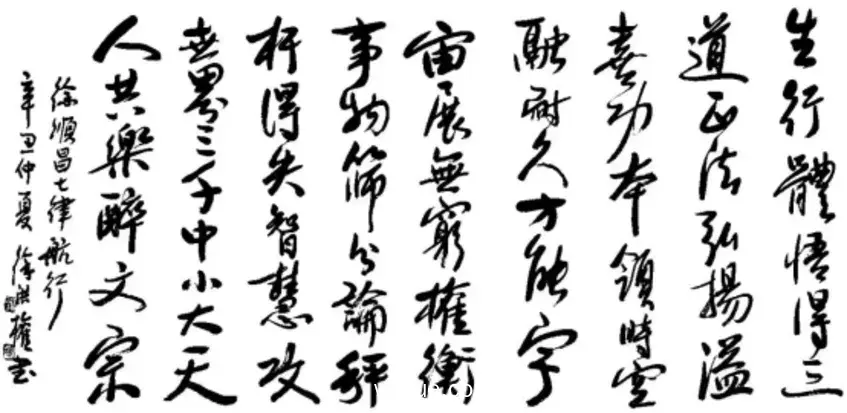 生行體悟得三
道正法弘揚溢
喜功本領時空
融耐久方能宇
宙展無窮權衡
事物篩分論秤
杆得失智慧攻
世界三千中小大天
人共樂醉文宗
徐順昌七律航行
辛丑仲夏徐洪權書